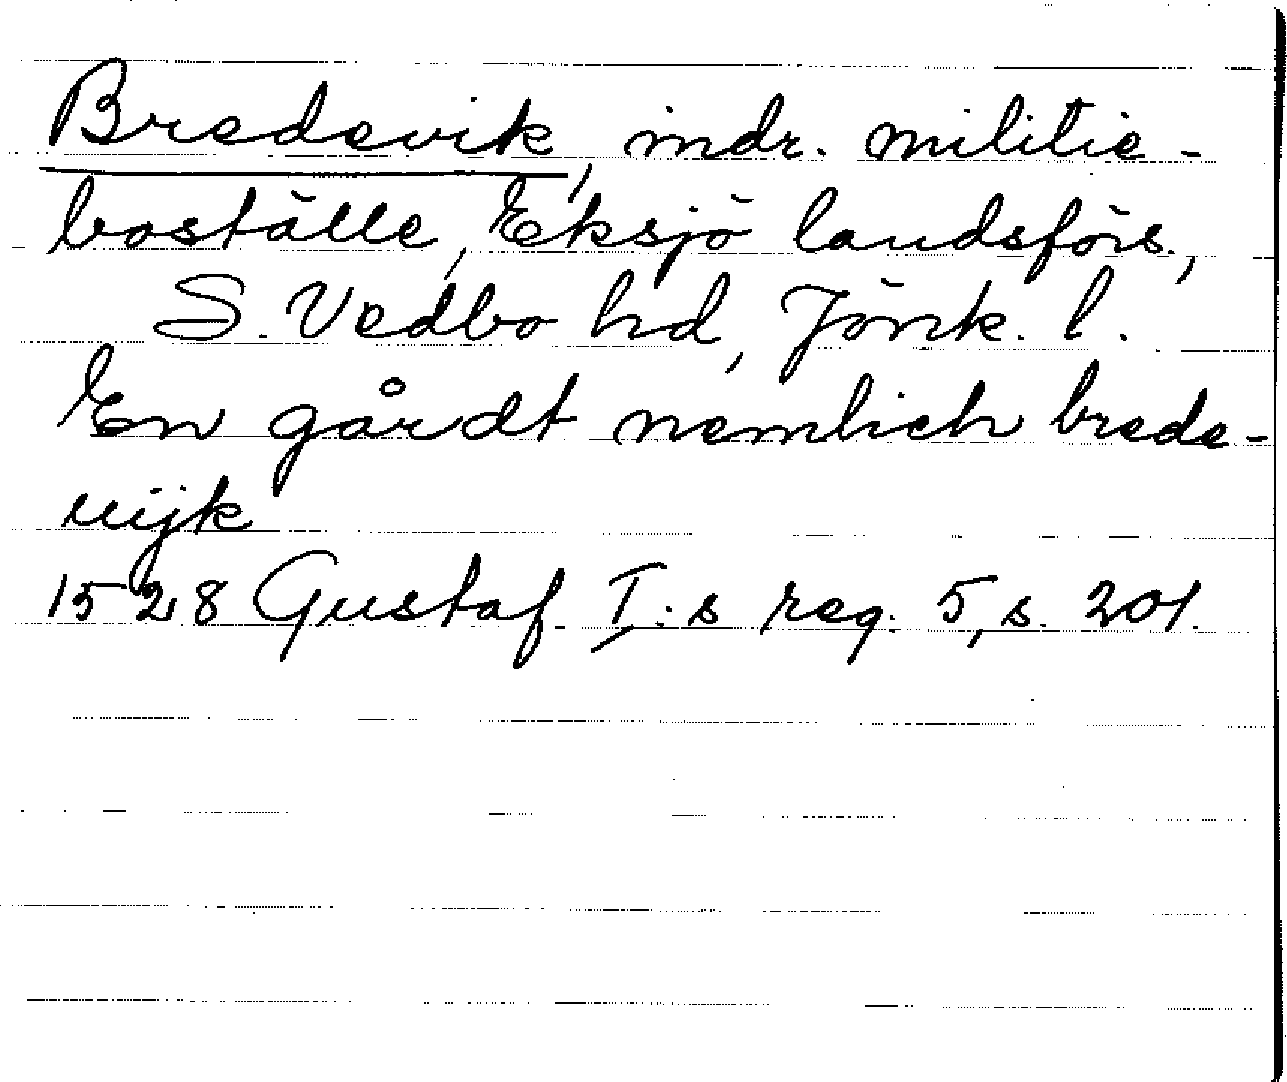 Bredevik, indr. militie-
boställe, Eksjö landsförs.,
S. Vedbo hd, Jönk. l.
En gårdt nemlich brede-
uijk
1528 Gustaf I:s reg. 5, s. 201.